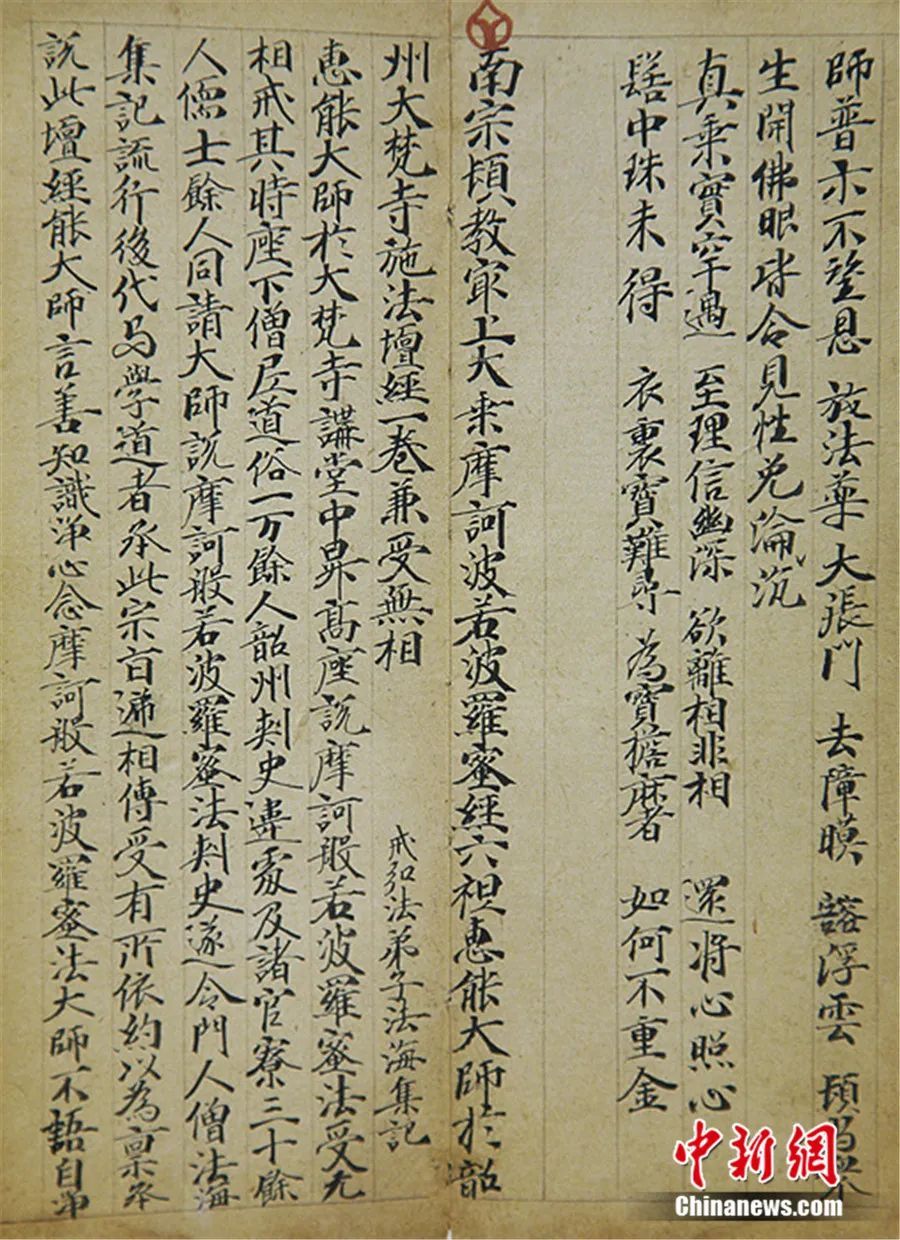 師普示不望恩 放法藥大張門 去障膜 豁浮雲 頓為衆
生開佛眼皆令見性免淪沉
真乘實罕遇 至理信幽深 欲離相非相 還將心照心
髻中珠未得 衣裏寶難尋 為寶擔麻者 如何不重金
南宗頓教最上大乘摩訶波若波羅蜜經六祖惠能大師於韶
州大梵寺施法壇經一卷兼受無相
戒弘法弟子法海集記
惠能大師於大梵寺講堂中昇高座說摩訶般若波羅蜜法受無
相戒其時座下僧尼道俗一万餘人韶州刺史違處及諸官寮三十餘
人儒士餘人同請大師說摩訶般若波羅蜜法刺史遂令門人僧法海
集記流行後代与學道者承此宗旨遞相傳受有所依約以為稟承
說此壇經能大師言善知識淨心念摩訶般若波羅蜜法大師不語自
中新網
Chinanews.com